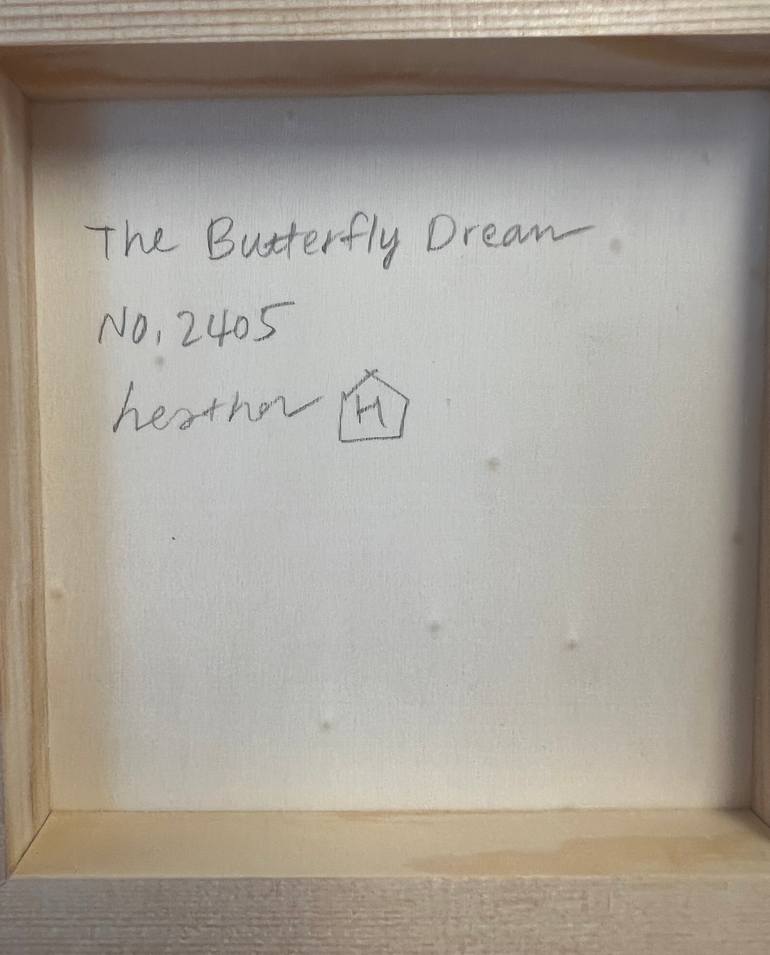 The Butterfly Dream
No. 2405
heather H